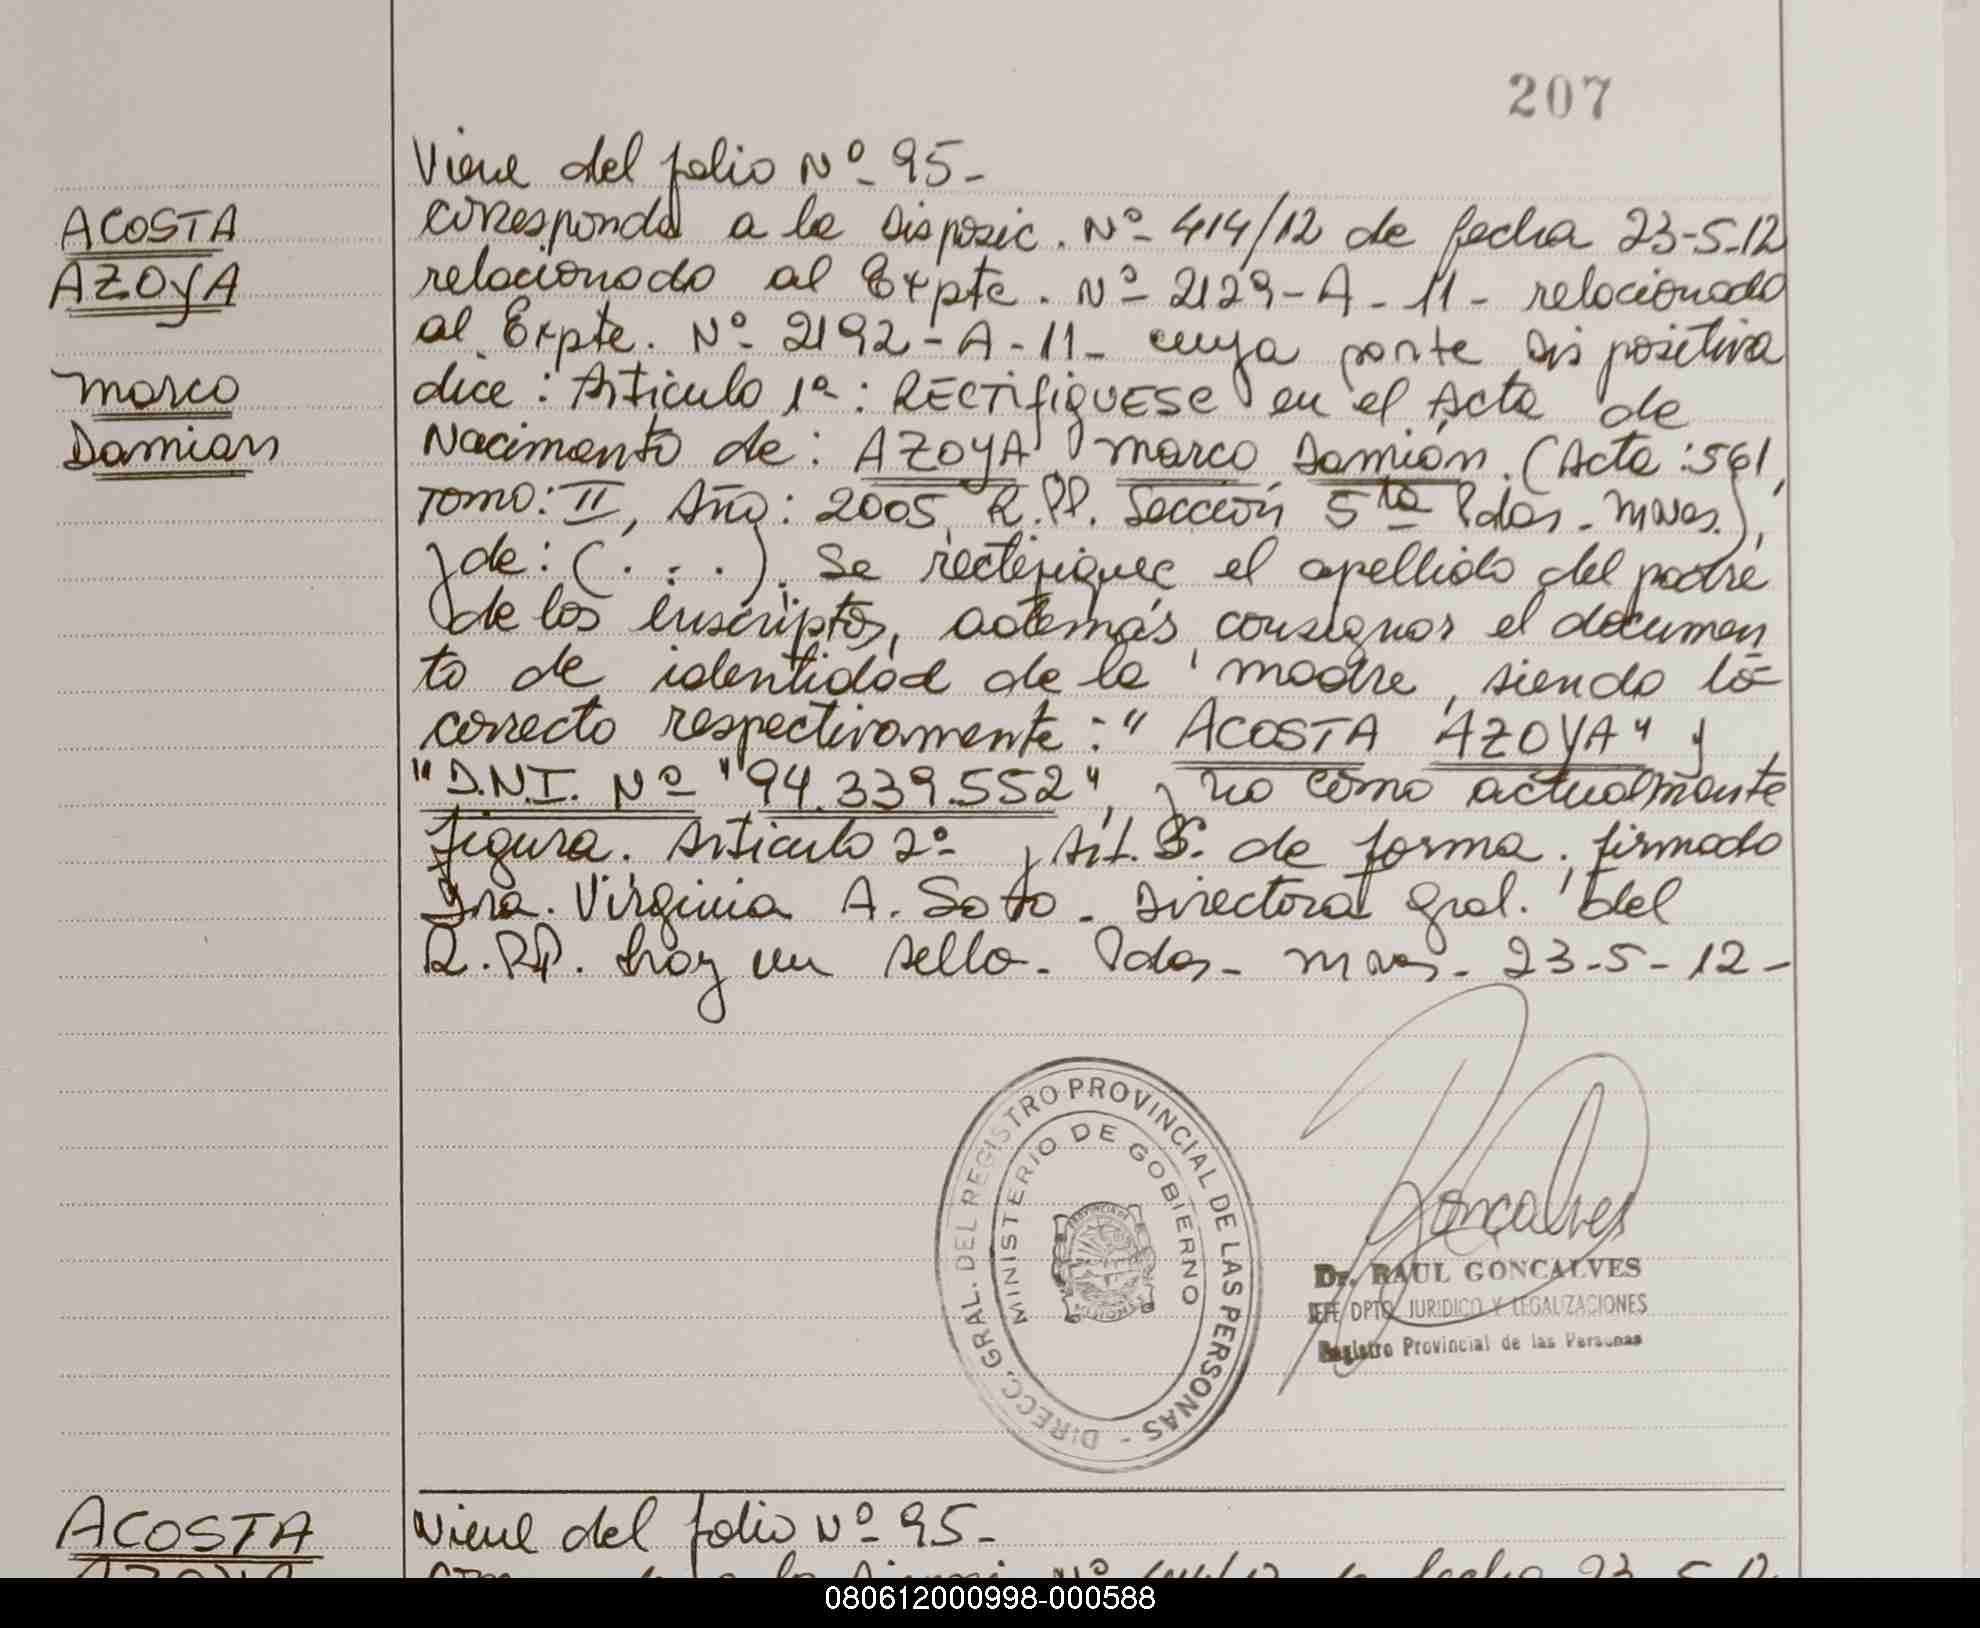 207
Viene del folio Nº 95-
ACOSTA
AZOYA
Marco
Damian
corresponde a la Disposic. Nº 414/12 de fecha 23-5-12
relacionado al Expte. Nº 2129-A-11- relacionado
al Expte. Nº 2192-A-11- cuya parte dispositiva
dice: Articulo 1º: RECTIFIQUESE en el Acta de
Nacimiento de: AZOYA Marco Damián. (Acta: 561,
Tomo: II, Año: 2005, R.PP. Sección 5ta Pdas. Mnes.),
y de: (...). Se rectifique el apellido del padre
de los inscriptos, además consignar el documen
to de identidad de la madre, siendo lo
correcto respectivamente: "ACOSTA AZOYA" y
"D.N.I. Nº "94.339.552", y no como actualmente
figura. Articulo 2º y Art. 3º de forma. firmado
Dra. Virginia A. Soto. Directora Gral. del
R.PP. hay un sello. Pdas. Mnes. 23-5-12-
DIRECC. GRAL. DEL REGISTRO PROVINCIAL DE LAS PERSONAS -
MINISTERIO DE GOBIERNO
Goncalves
Dr. RAUL GONCALVES
JEFE DPTO. JURIDICO Y LEGALIZACIONES
Registro Provincial de las Personas
ACOSTA
Viene del folio Nº 95-
080612000998-000588